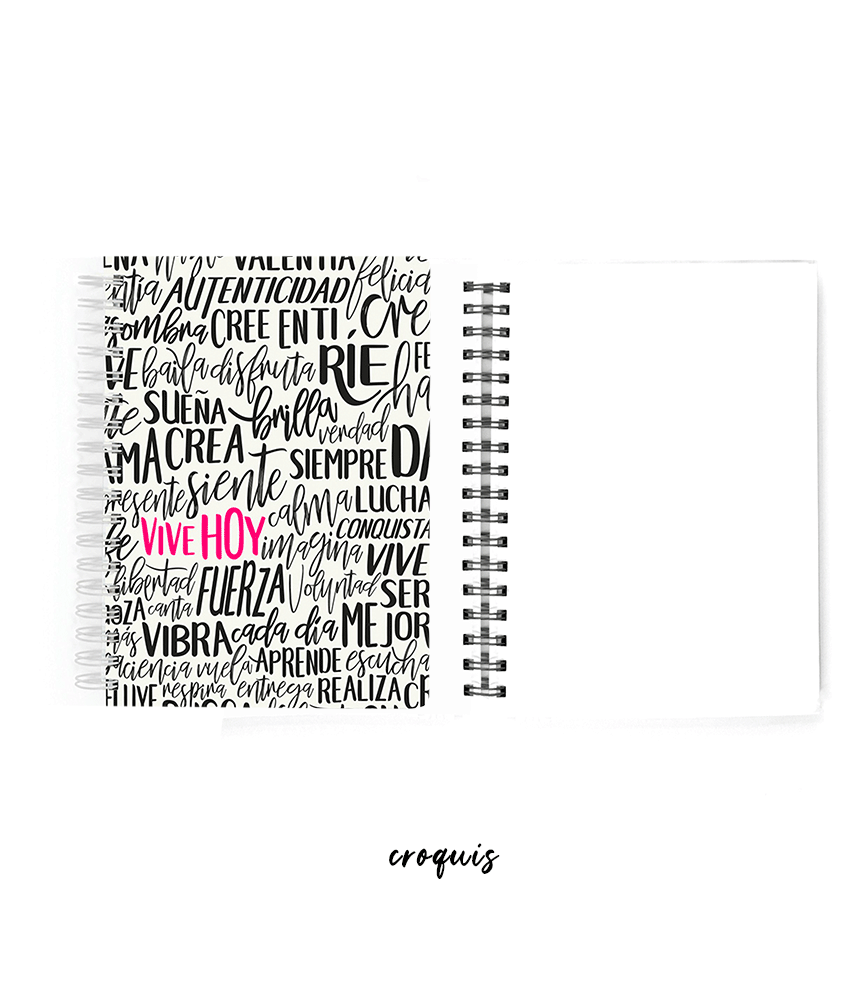 VALENTÍA
AUTENTICIDAD felicid
sombra CREE EN TI Cre
VE baila disfruta RÍE FE
SUEÑA brilla ha
AMA CREA verdad
SIEMPRE DA
presente siente calma LUCHA
VIVE HOY CONQUISTA
imagina VIVE
libertad FUERZA Voluntad SER
OZA canta
más VIBRA cada día MEJOR
aciencia vuela APRENDE escucha
FLUYE respira entrega REALIZA CR
croquis